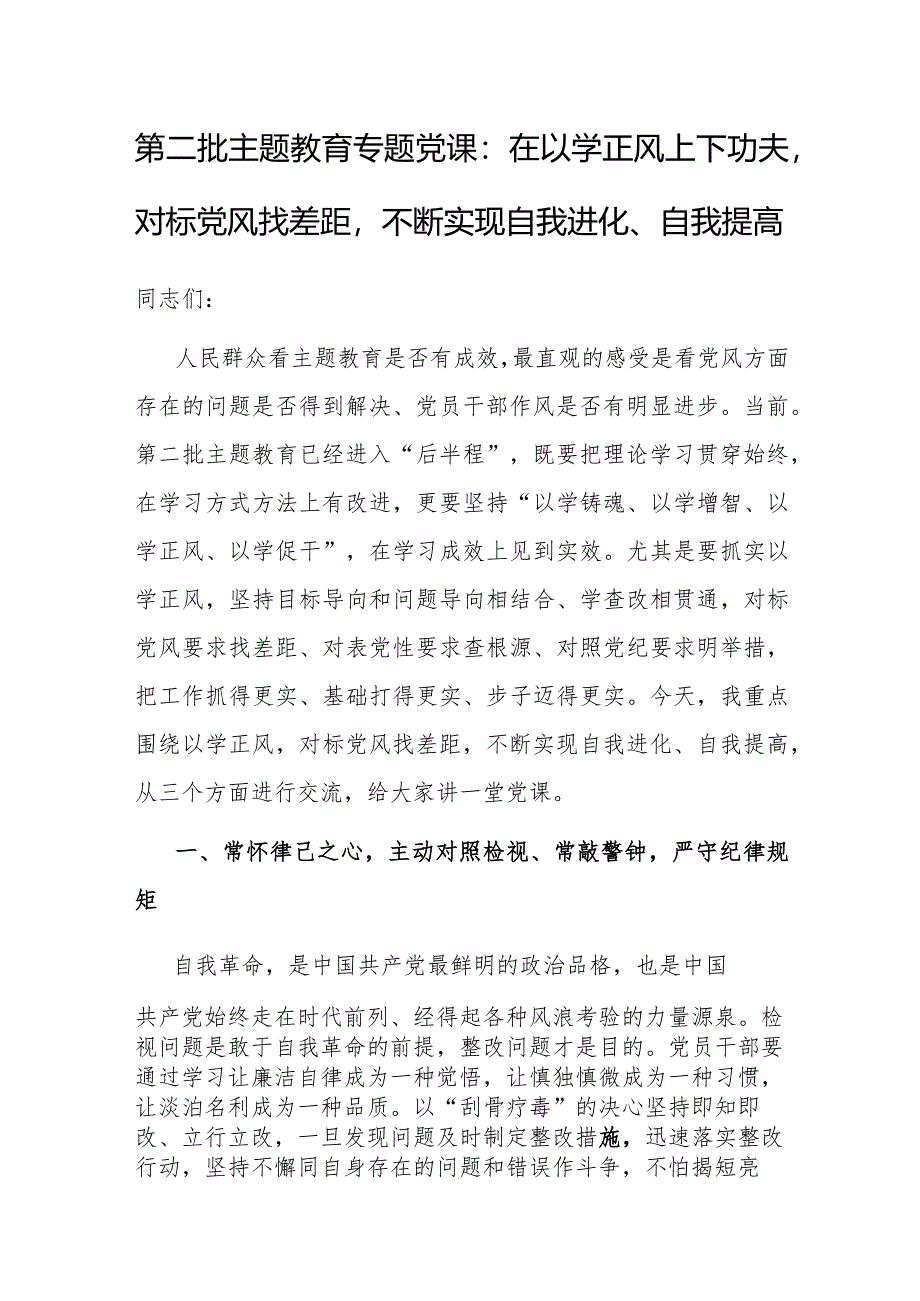 第二批主题教育专题党课：在以学正风上下功夫，
对标党风找差距，不断实现自我进化、自我提高
同志们：
人民群众看主题教育是否有成效，最直观的感受是看党风方面
存在的问题是否得到解决、党员干部作风是否有明显进步。当前。
第二批主题教育已经进入“后半程”，既要把理论学习贯穿始终，
在学习方式方法上有改进，更要坚持“以学铸魂、以学增智、以
学正风、以学促干”，在学习成效上见到实效。尤其是要抓实以
学正风，坚持目标导向和问题导向相结合、学查改相贯通，对标
党风要求找差距、对表党性要求查根源、对照党纪要求明举措，
把工作抓得更实、基础打得更实、步子迈得更实。今天，我重点
围绕以学正风，对标党风找差距，不断实现自我进化、自我提高，
从三个方面进行交流，给大家讲一堂党课。
一、常怀律己之心，主动对照检视、常敲警钟，严守纪律规
矩
自我革命，是中国共产党最鲜明的政治品格，也是中国
共产党始终走在时代前列、经得起各种风浪考验的力量源泉。检
视问题是敢于自我革命的前提，整改问题才是目的。党员干部要
通过学习让廉洁自律成为一种觉悟，让慎独慎微成为一种习惯，
让淡泊名利成为一种品质。以“刮骨疗毒”的决心坚持即知即
改、立行立改，一旦发现问题及时制定整改措施，迅速落实整改
行动，坚持不懈同自身存在的问题和错误作斗争，不怕揭短亮